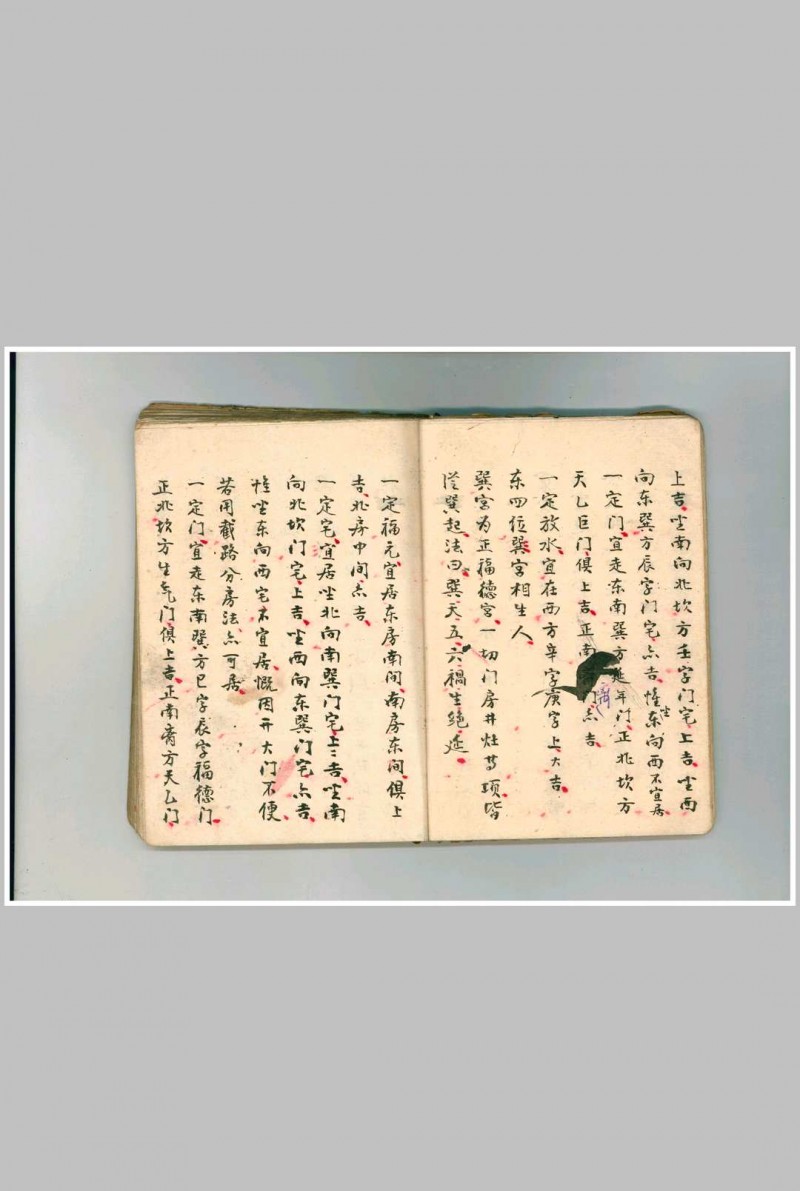 上吉坐南向北坎方壬字门宅上吉坐西
向东巽方辰字门宅点吉惟坐东向西不宜居
一定门宜走东南巽方延年门正北坎方
天乙巨门俱上吉正南门点吉
一定放水宜在西方辛字庚字上大吉
东四位巽宫相生人
巽宫为正福德宫一切门房井灶等项皆
从巽起法曰巽天五六祸生绝延
一定福元宜居东房南间南房东间俱上
吉北房中间点吉
一定宅宜居坐北向南巽门宅上上吉坐南
向北坎门宅上吉坐西向东巽门宅点吉
惟坐东向西宅不宜居慨因开大门不便
若用截路分房法点可居
一定门宜走东南巽方巳字辰字福德门
正北坎方生气门俱上吉正南离方天乙门